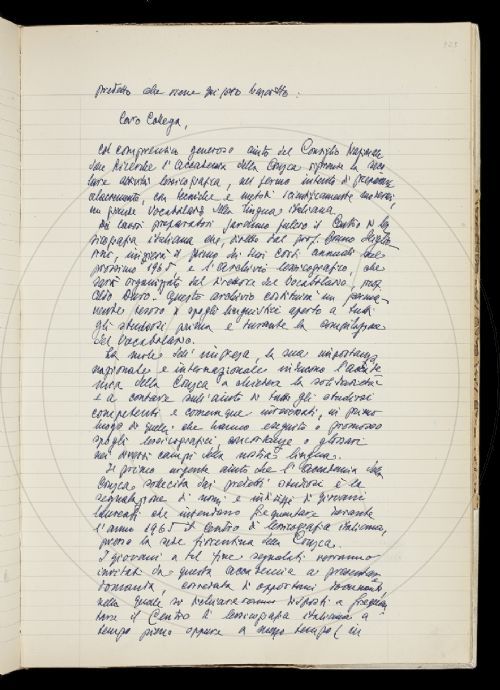 predetto che viene qui poco trascritto:
Caro Collega,
col comprensivo generoso aiuto del Consiglio Nazionale
delle Ricerche l'Accademia della Crusca riprende la seco-
lare attività lessicografica, nel fermo intento di preparare
alacremente, con tecniche e metodi scientificamente moderni,
un grande Vocabolario della lingua italiana.
Ai lavori preparatori faranno fulcro il Centro di les-
sicografia italiana che, diretto dal prof. Bruno Miglio-
rini, inizierà il primo dei suoi corsi annuali nel
prossimo 1965 e l'archivio lessicografico, che
sarà organizzato dal Direttore del Vocabolario, prof.
Aldo Duro. Questo archivio costituirà un perma-
nente tesoro di spogli linguistici aperto a tutti
gli studiosi, prima e durante la compilazione
del Vocabolario.
La mole dell'impresa, la sua importanza
nazionale e internazionale inducono l'Accade-
mia della Crusca a chiedere la solidarietà
e a contare sull'aiuto di tutti gli studiosi
competenti e comunque interessati, in primo
luogo di quelli che hanno eseguito o promosso
spogli lessicografici, concordanze o glossari
nei diversi campi della nostra lingua.
Il primo urgente aiuto che l'Accademia della
Crusca sollecita dai predetti studiosi è la
segnalazione di nomi e indirizzi di giovani
laureati che intendono frequentare durante
l'anno 1965 il Centro di lessicografia italiana,
presso la sede fiorentina della Crusca.
I giovani a tal fine segnalati verranno
invitati da questa Accademia a presentare
domanda, corredata di opportuni documenti
nella quale si dichiareranno disposti a frequen-
tare il Centro di lessicografia italiana a
tempo pieno oppure a mezzo tempo (in